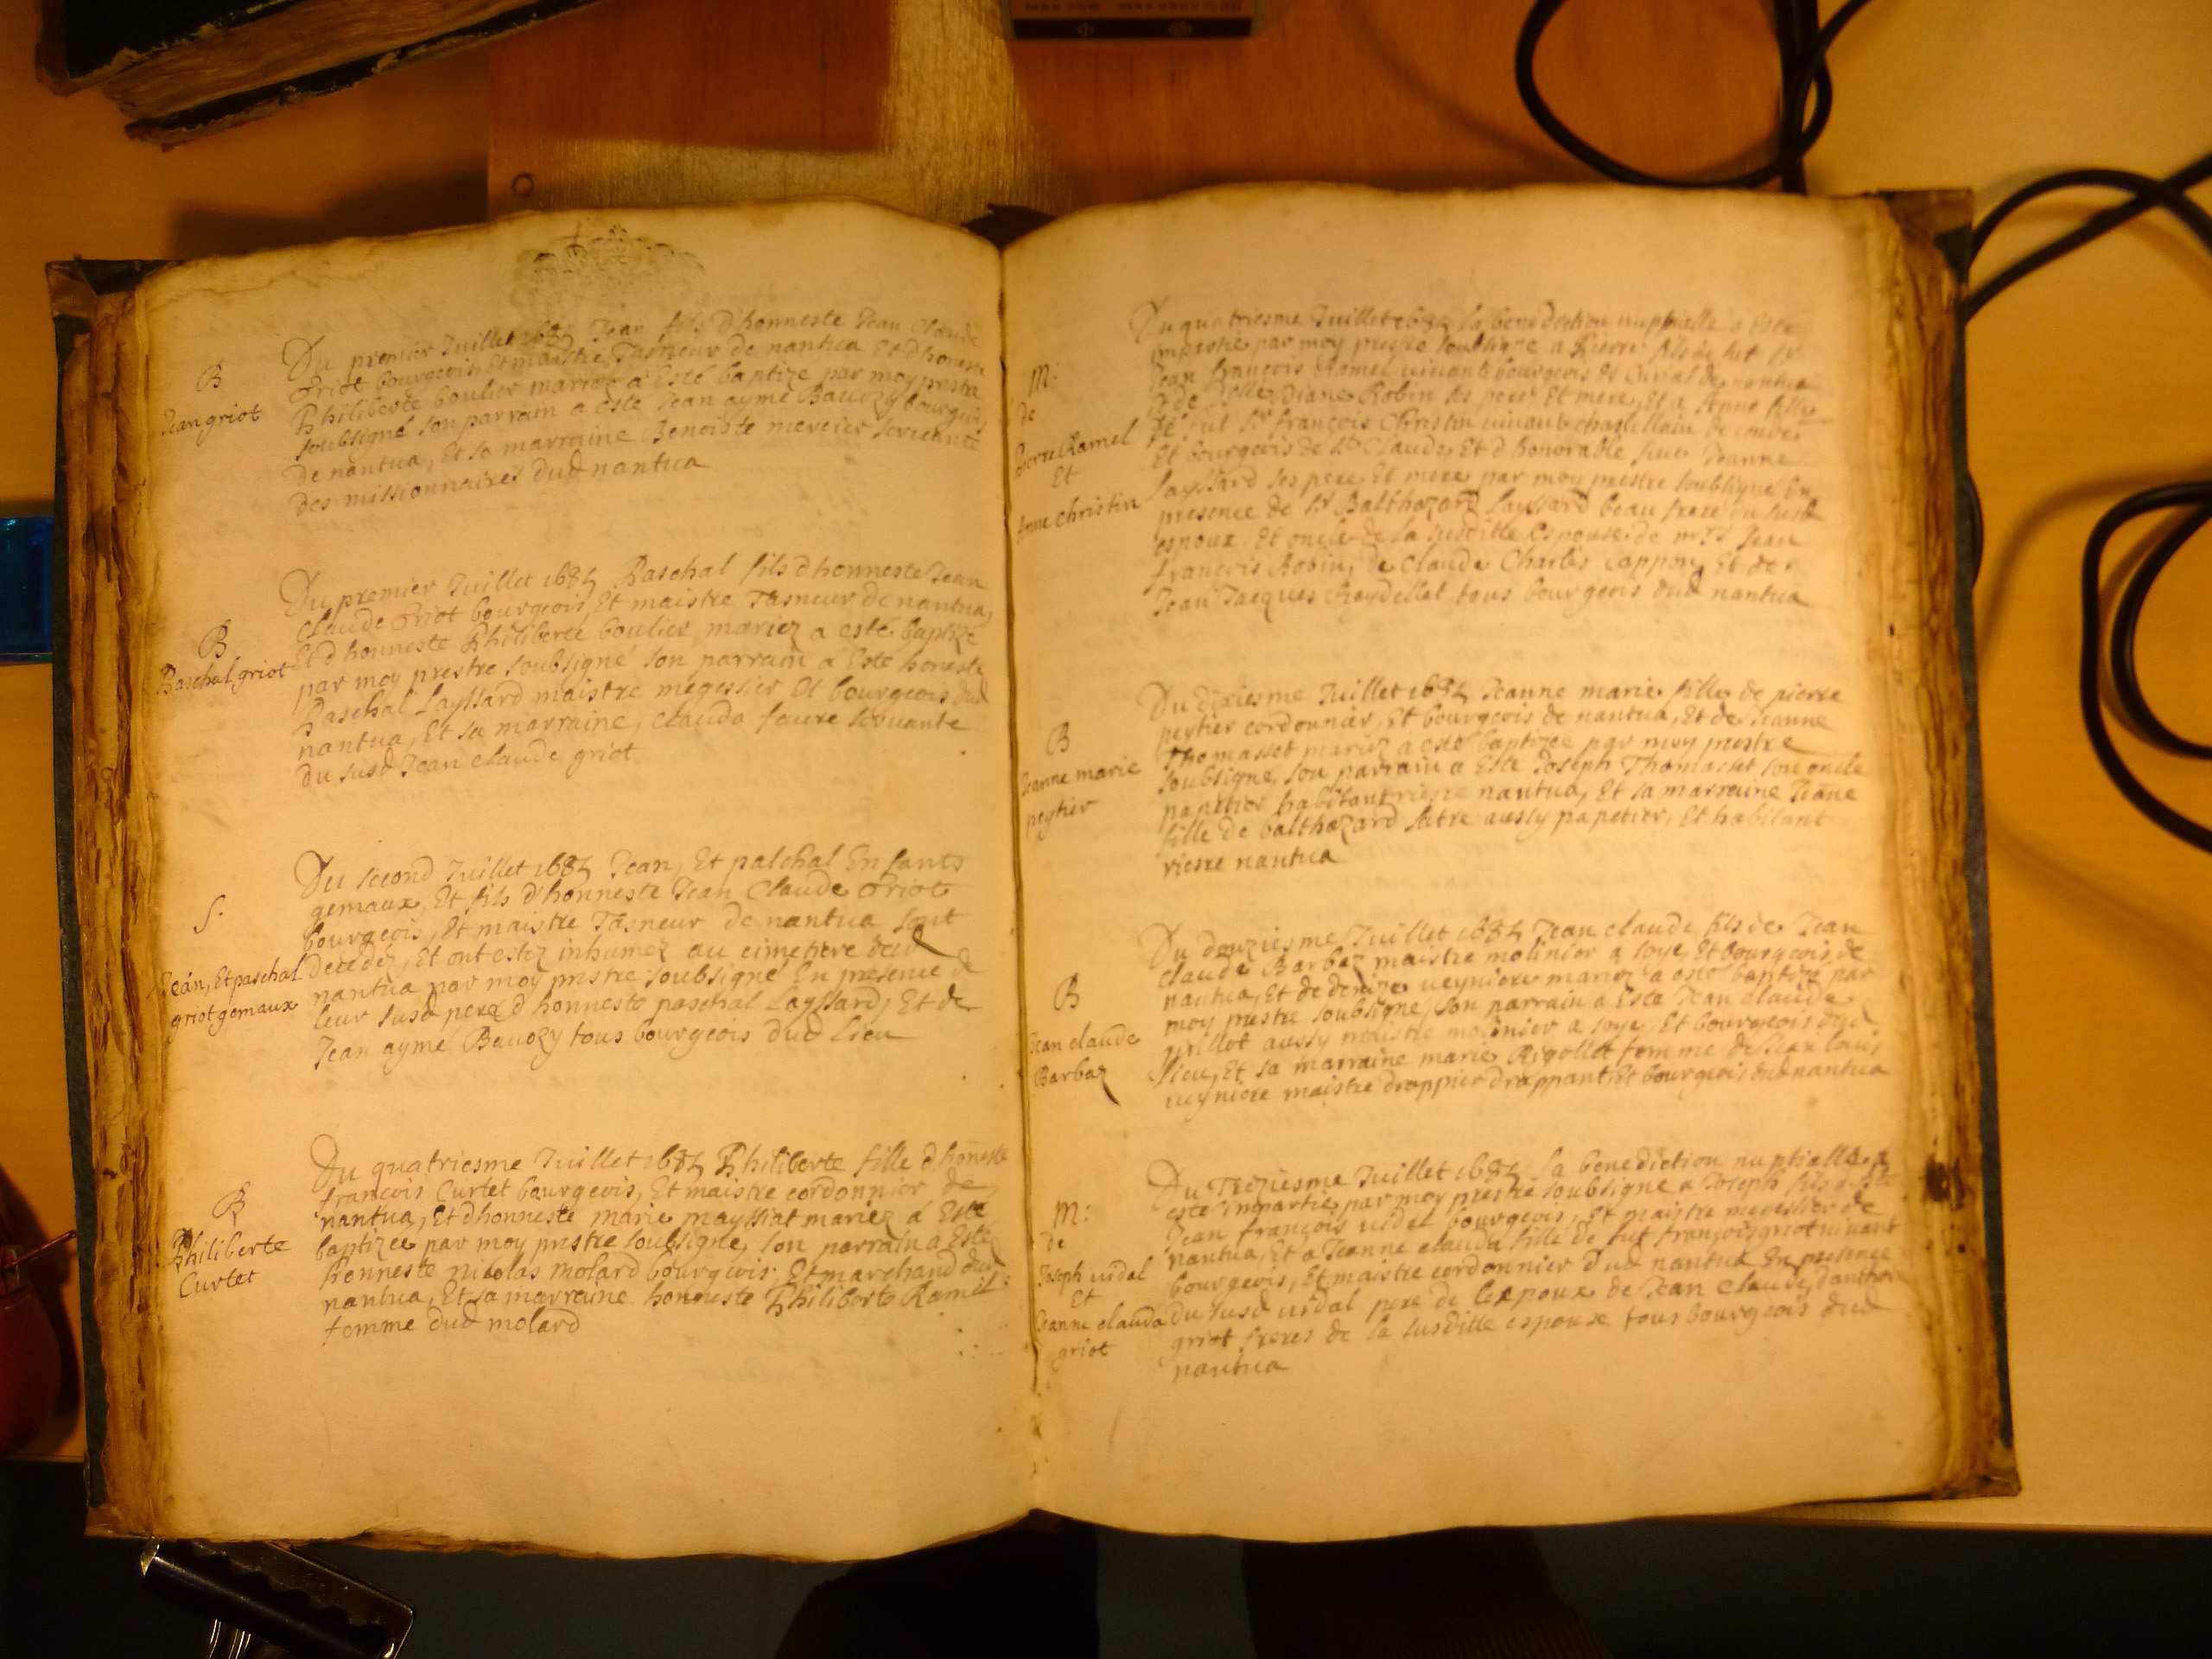 B
Jean griot
Du premier Juillet 1684 Jean fils d'honneste Jean Claude
Griot bourgeois, Et maistre Tasneur de nantua Et d'honeste
Philiberte boulier mariez a Esté baptize par moy prestre
soubsigné son parrain a esté Jean aymé Bavozy bourgeois
de nantua, Et sa marraine Benoiste mercier servante
des missionnaires dud nantua
B
Paschal griot
Du premier Juillet 1684 Paschal fils d honneste Jean
Claude Griot bourgeois, Et maistre Tasneur de nantua,
Et d honneste Philiberte boulier mariez a esté baptize
par moy prestre soubsigné son parrain a Esté honeste
Paschal Layssard maistre megissier Et bourgeois dud
nantua, Et sa marraine, Clauda faure servante
du susd Jean claude griot
S.
Jean, Et paschal
griot gemaux
Du second Juillet 1684 Jean, Et paschal Enfants
gemaux, Et fils d'honneste Jean Claude Griot
bourgeois, Et maistre Tasneur de nantua sont
decedez, Et ont estez inhumez au cimetiere dud
nantua par moy prestre soubsigné En presence de
leur susd pere d honneste paschal Layssard, Et de
Jean aymé Bavozy tous bourgeois dud Lieu
B
Philiberte
Curtet
Du quatriesme Juillet 1684 Philiberte fille d'honeste
francois Curtet bourgeois, Et maistre cordonnier de
nantua, Et d honneste marie mayssiat mariez a Esté
baptizee par moy prestre soubsigné, son parrain a Esté
honneste nicolas molard bourgeois, Et marchand dud
nantua, Et sa marraine honneste Philiberte Ramel
femme dud molard
M:
de
pierre Ramel
Et
Anne christin
Du quatriesme Juillet 1684 la benediction nuptialle a Esté
impartie par moy prestre soubsigné a Pierre fils de fut Sr
Jean françois Ramel vivant bourgeois Et Curial de nantua
Et de delle Diane Robin ses pere Et mere, Et a Anne fille
de fut Sr françois Christin vivant chastellain de
Et bourgeois de St Claude, Et d honorable Jeanne
Layssard ses pere, Et mere par moy prestre soubsigné En
presence de Sr Balthazard Layssard beau frere du susd
espoux, Et oncle de la susditte Espouse de mrs Jean
françois Robin, de Claude Charles Cappon, Et de
Jean Jacques Reydellet tous bourgeois dud nantua
B
Jeanne marie
peytier
Du dixiesme Juillet 1684 Jeanne marie fille de pierre
peytier cordonnier, Et bourgeois de nantua, Et de Jeanne
Thomasset mariez a esté baptizee par moy prestre
soubsigné, son parrain a Esté Joseph Thomasset son oncle
papetier habitant riere nantua, Et sa marraine Jeane
fille de balthazard aussy papetier, Et habitant
riere nantua
B
Jean claude
Barbaz
Du douziesme Juillet 1684 Jean claude fils de Jean
Claude Barbaz maistre molinier a soye, Et bourgeois de
nantua, Et de denize veyniere mariez a esté baptizé par
moy prestre soubsigné, son parrain a Esté Jean claude
girillot aussy maistre molinier a soye, Et bourgeois dud
lieu, Et sa marraine marie Rigollet femme de Jean Louis
veyniere maistre drappier drappant, Et bourgeois dud nantua
M:
de
Joseph vidal
Et
Jeanne clauda
griot
Du Treziesme Juillet 1684 la benediction nuptialle a
esté impartie par moy prestre soubsigné a Joseph fils
Jean françois vidal bourgeois, Et maistre megissier de
nantua, Et a Jeanne clauda fille de fut françois griot vivant
bourgeois, Et maistre cordonnier dud nantua En presence
du susd vidal pere de lespoux de Jean Claude,
griot freres de la susditte espouse tous bourgeois dud
nantua